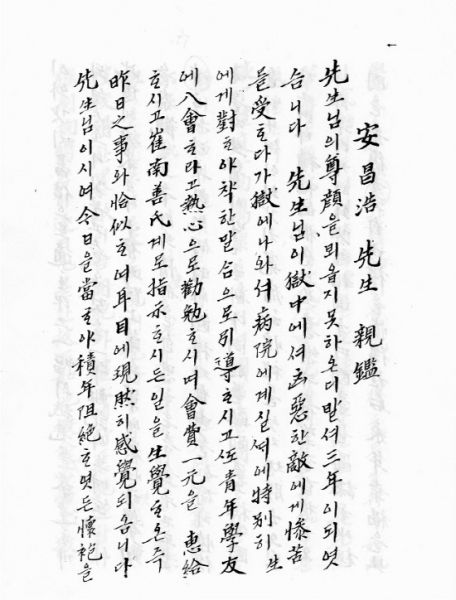 安昌浩 先生 親鑑
先生님의 尊顔을 뵈옵지못하온디 발셔三年이되엿
습니다 先生님이 獄中에셔 凶惡한敵에게 慘苦
를受ᄒᆞ다가 獄에나와셔 病院에계실ᄯᅢ에 特別히 生
에게對ᄒᆞ야 착한말숨으로引導ᄒᆞ시고 ᄯᅩ靑年學友
에入會ᄒᆞ라고熱心으로勸勉ᄒᆞ시며 會費一元을 惠給
ᄒᆞ시고 崔南善氏게로指示ᄒᆞ시든일을 生覺ᄒᆞ온즉
昨日之事와恰似ᄒᆞ여 耳目에現然히感覺되옴니다
先生님이시여 今日을當ᄒᆞ야 積年阻絶ᄒᆞ엿든懷抱을